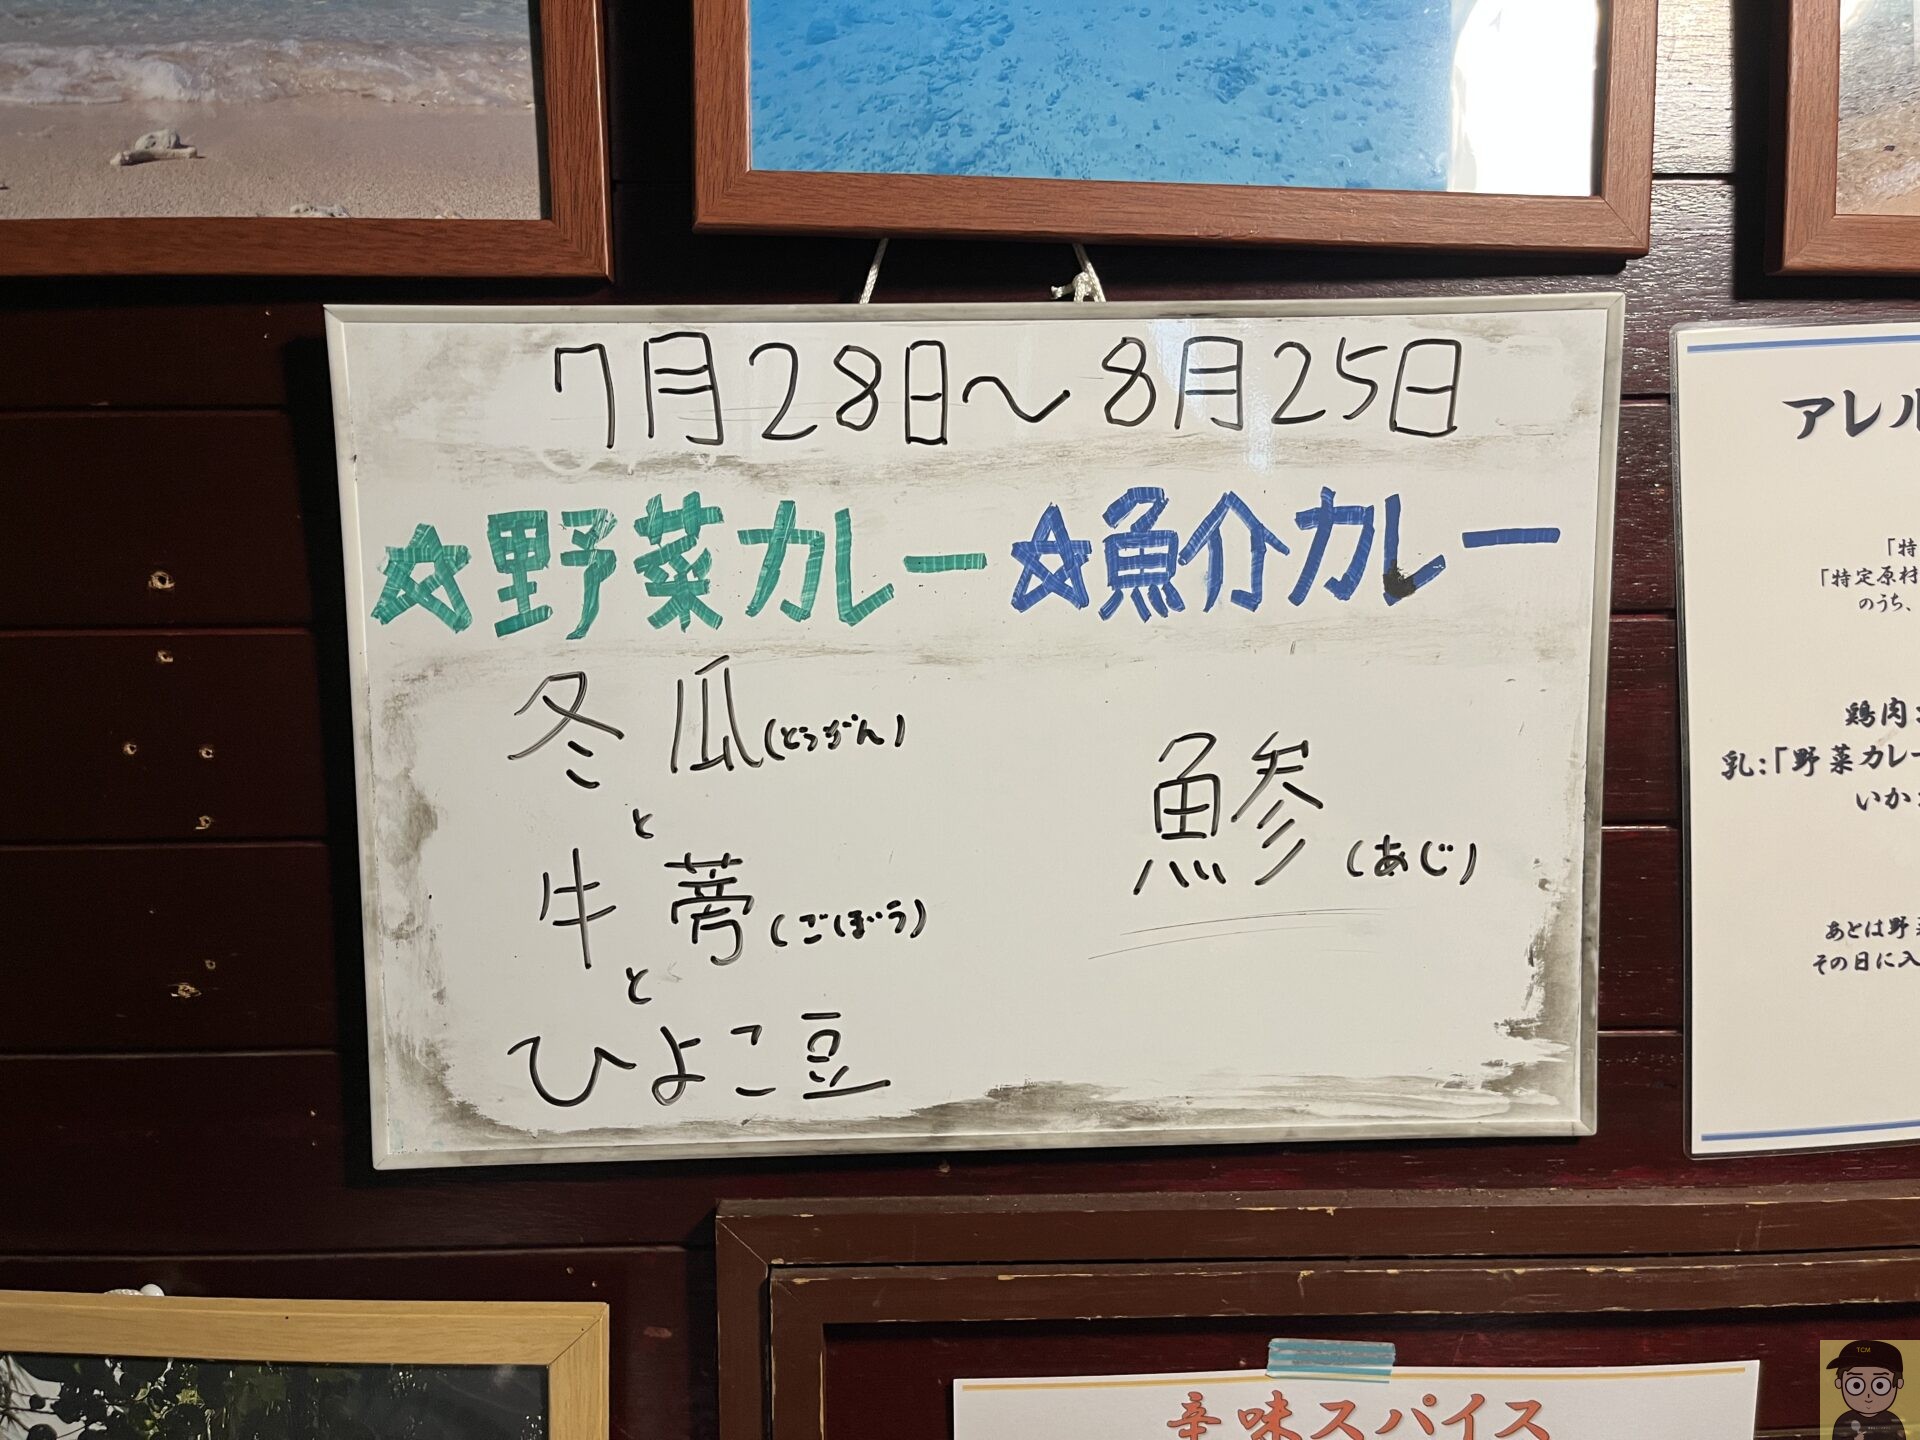 7月28日～8月25日
☆野菜カレー ☆魚介カレー
冬瓜(とうがん)
と
牛蒡(ごぼう)
と
ひよこ豆
鯵(あじ)
アレル
「特
「特定原材
のうち、
鶏肉:
乳:「野菜カレー
いか:
あとは野菜
その日に入
辛味スパイス
TCM